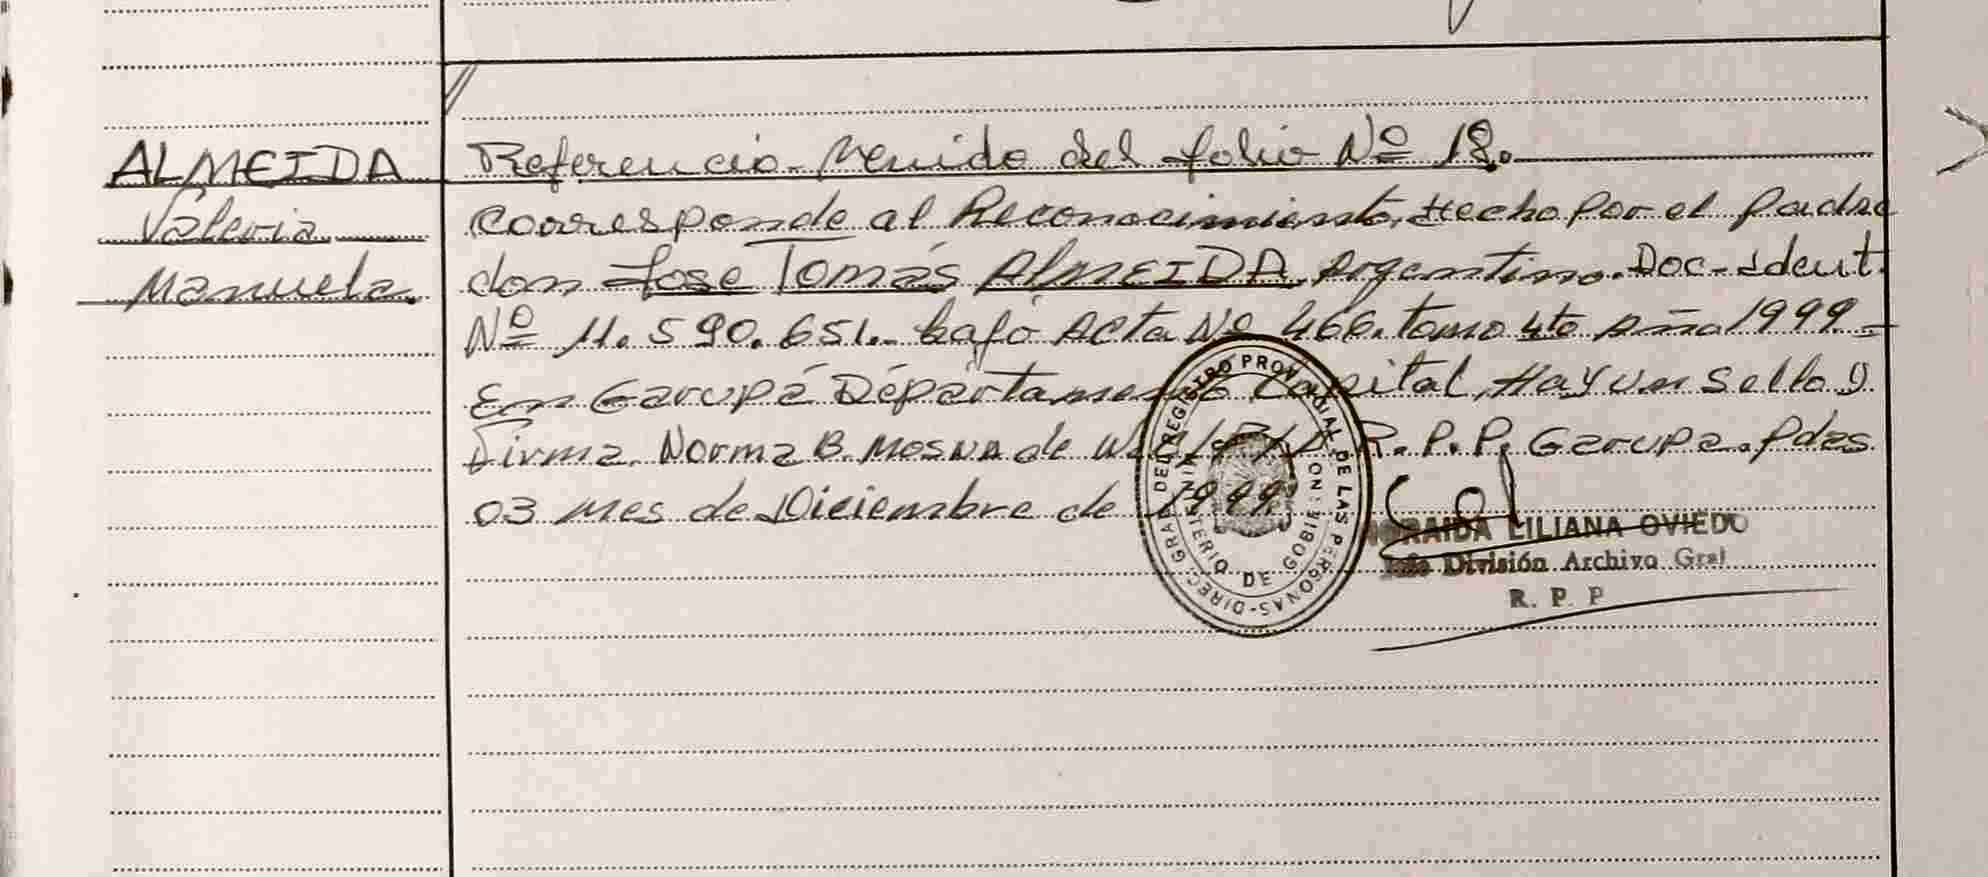 ALMEIDA
Valeria
Manuela.
Referencia. Venido del folio Nº 18.
Corresponde al Reconocimiento, Hecho por el padre
don Jose Tomás ALMEIDA, Argentino. Doc-Ident.
Nº 11.590.651.- bajo Acta Nº 466. tomo 4to Año 1999-
En Garupá Departamento Capital, Hay un sello y
Firma. Norma B. Mosna de R.P.P. Garupa. Pdas.
03 mes de Diciembre de 1999.
DIREC GRAL DEL REGISTRO PROVINCIAL DE LAS PERSONAS-
MINISTERIO DE GOBIERNO
LILIANA OVIEDO
Jefe División Archivo Gral
R. P. P